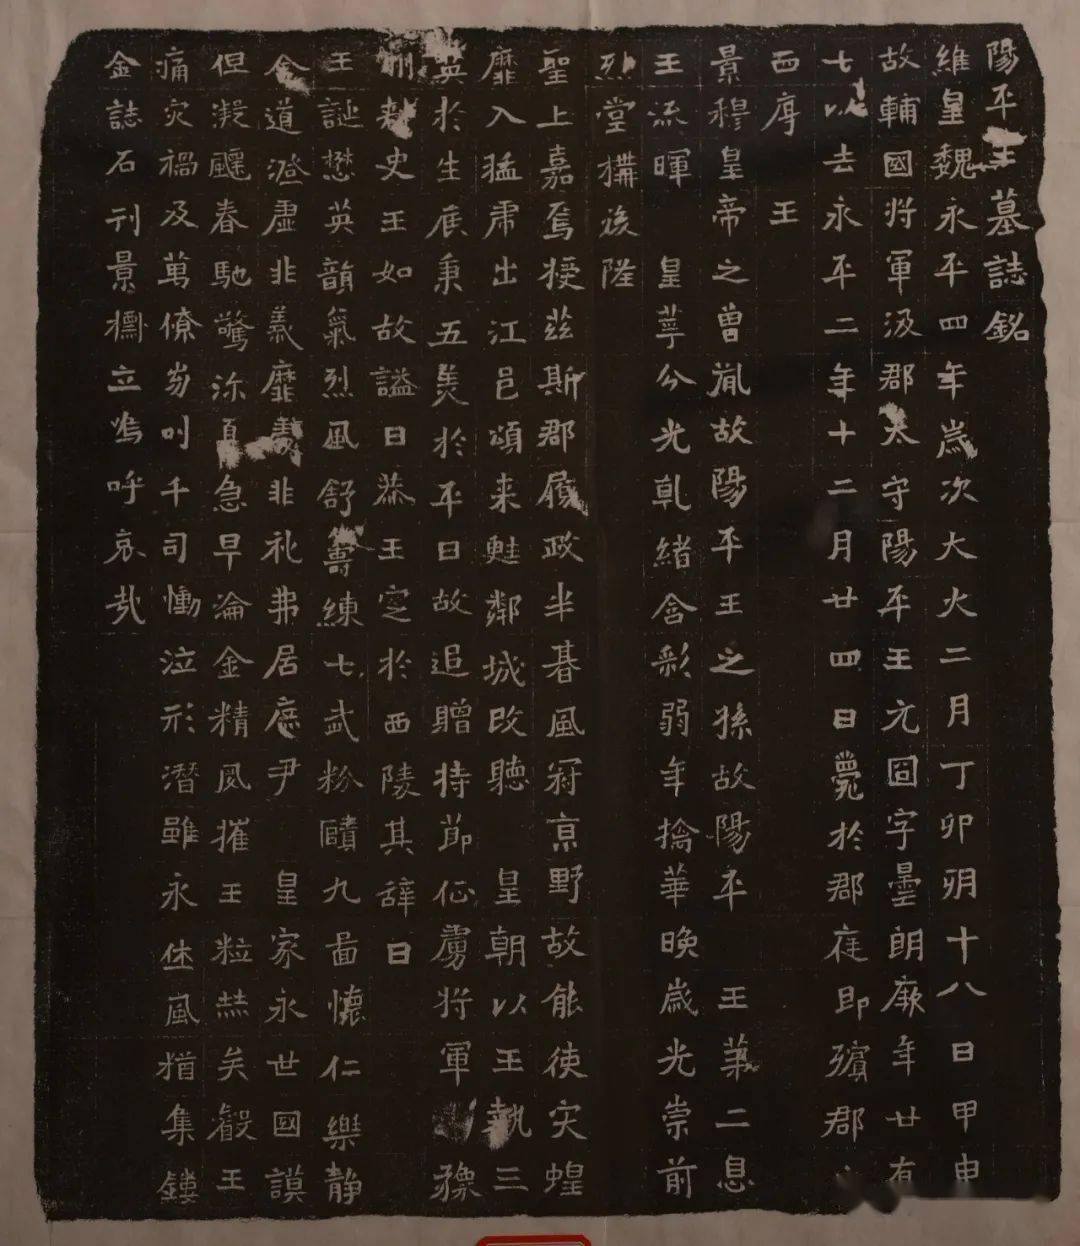 陽平王墓誌銘
維皇魏永平四年歲次大火二月丁卯朔十八日甲申
故輔國將軍汲郡太守陽平王元囧字曇朗厥年廿有
七以去永平二年十二月廿四日薨於郡庭即殯郡
西序 王
景穆皇帝之曾胤故陽平王之孫故陽平 王第二息
王流暉 皇萼分光乹緒含彩弱年擒華晚歲光崇前
烈堂構後陛
聖上嘉焉授茲斯郡履政半朞風冠京野故能使灾蝗
靡入猛肅出江邑頌来甦鄰城改聽 皇朝以王執三
英於生辰秉五美於平日故追贈持節征虜將軍 豫
州刾史王如故謚曰恭王窆於西陵其辞曰
王誕懋英韻氣烈風舒籌練七武粉賾九畐懷仁樂静
含道澄虛非義靡 非礼弗居庶尹 皇家永世國謨
但凝飈春馳驚沵夏急早淪金精風摧王粒恭矣觀王
痛灾禍及萬僚芴叫千司慟泣形潜雖永休風猶集鏤
金誌石刊景檦立嗚呼哀哉